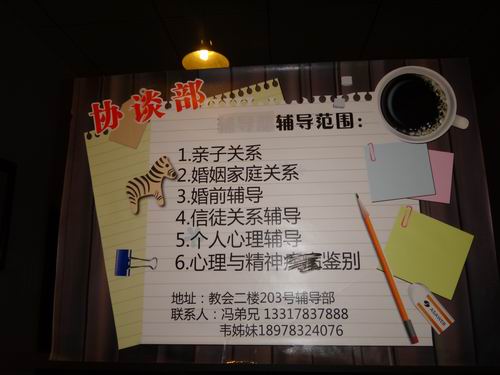 协谈部
辅导范围：
1.亲子关系
2.婚姻家庭关系
3.婚前辅导
4.信徒关系辅导
5.个人心理辅导
6.心理与精神鉴别
地址：教会二楼203号辅导部
联系人：冯弟兄 13317837888
韦姊妹18978324076